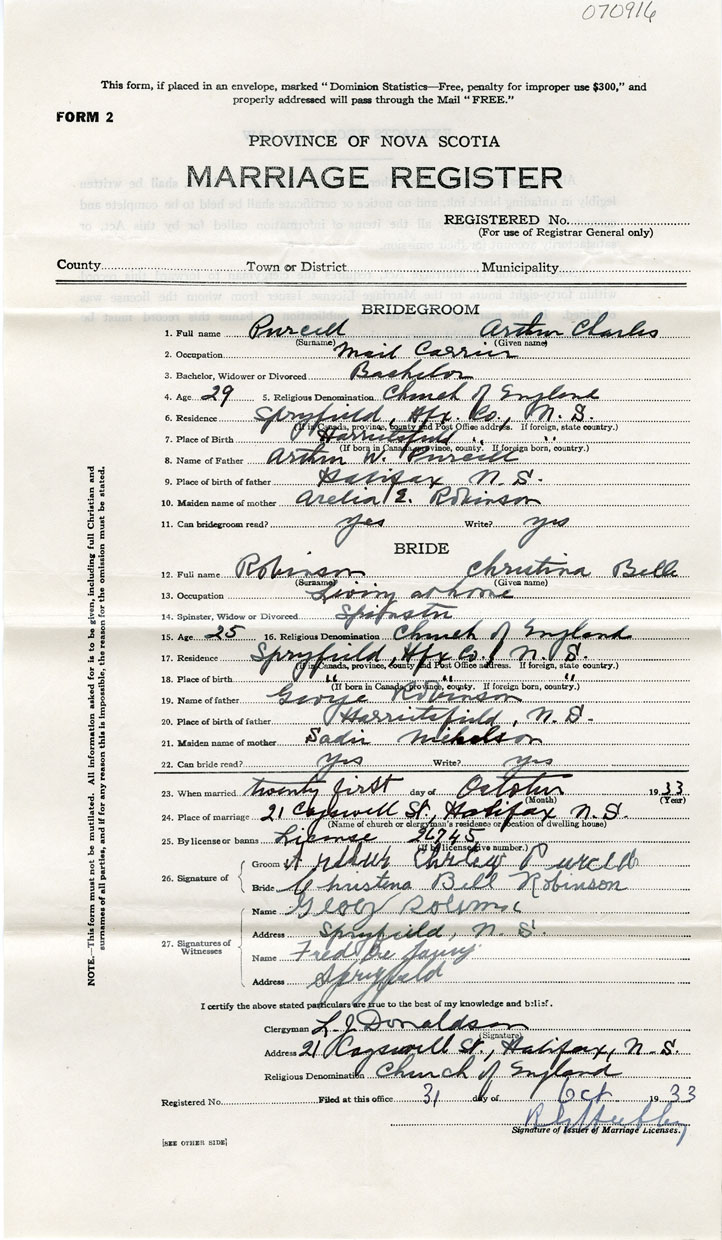 070916
This form, if placed in an envelope, marked "Dominion Statistics—Free, penalty for improper use $300," and
properly addressed will pass through the Mail "FREE."
FORM 2
PROVINCE OF NOVA SCOTIA
MARRIAGE REGISTER
REGISTERED No.
(For use of Registrar General only)
County Town or District Municipality
BRIDEGROOM
1. Full name Purcell Arthur Charles
(Surname) (Given name)
2. Occupation Mail Carrier
3. Bachelor, Widower or Divorced Bachelor
4. Age 29 5. Religious Denomination Church of England
6. Residence Spryfield, Hfx. Co., N. S.
(If in Canada, province, county and Post Office address. If foreign, state country.)
7. Place of Birth Harrietsfield " "
(If born in Canada, province, county. If foreign born, country.)
8. Name of Father Arthur W. Purcell
9. Place of birth of father Halifax N. S.
10. Maiden name of mother E. Robinson
11. Can bridegroom read? yes Write? yes
BRIDE
12. Full name Robinson Christina Bell
(Surname) (Given name)
13. Occupation Living at home
14. Spinster, Widow or Divorced Spinster
15. Age 25 16. Religious Denomination Church of England
17. Residence Spryfield, Hfx Co., N. S.
(If in Canada, province, county and Post Office address. If foreign, state country.)
18. Place of birth " " "
(If born in Canada, province, county. If foreign born, country.)
19. Name of father George Robinson
20. Place of birth of father Harrietsfield, N. S.
21. Maiden name of mother Sadie Nicholson
22. Can bride read? yes Write? yes
23. When married twenty first day of October 1933
(Month) (Year)
24. Place of marriage 21 Cogswell St., Halifax N. S.
(Name of church or clergyman's residence or location of dwelling house)
25. By license or banns License 26745
(If by license give number.)
26. Signature of Groom Arthur Charles Purcell
Bride Christena Bell Robinson
27. Signatures of Witnesses
Name
Address Spryfield, N. S.
Name Fred
Address Spryfield
I certify the above stated particulars are true to the best of my knowledge and belief.
Clergyman L. J. Donaldson
(Signature)
Address 21 Cogswell St., Halifax, N. S.
Religious Denomination Church of England
Registered No. Filed at this office 31 day of Oct 1933
Signature of Issuer of Marriage Licenses.
[SEE OTHER SIDE]
NOTE.—This form must not be mutilated. All information asked for is to be given, including full Christian and
surnames of all parties, and if for any reason this is impossible, the reason for the omission must be stated.